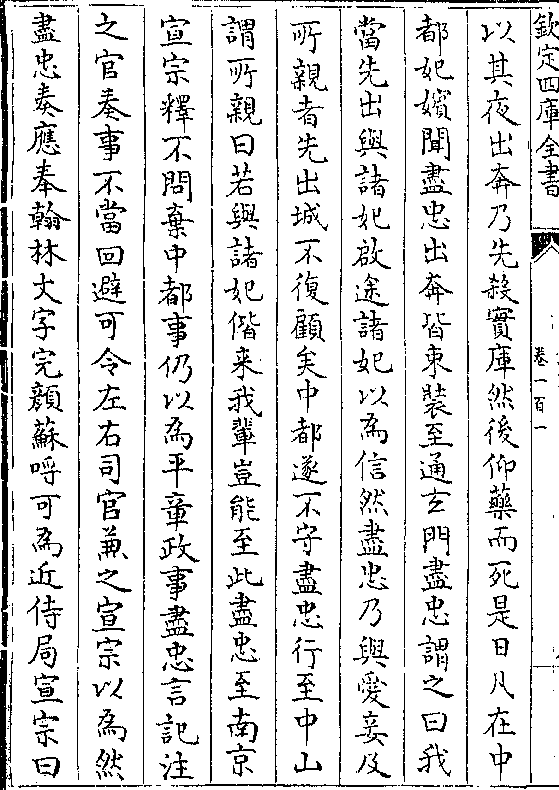 欽定四庫全書
卷一百一
以其夜出奔乃先殺實庫然後仰藥而死是日凡在中
都妃嬪聞盡忠出奔皆束裝至通玄門盡忠謂之曰我
當先出與諸妃啟途諸妃以為信然盡忠乃與愛妾及
所親者先出城不復顧矣中都遂不守盡忠行至中山
謂所親曰若與諸妃偕来我輩豈能至此盡忠至南京
宣宗釋不問棄中都事仍以為平章政事盡忠言記注
之官奏事不當回避可令左右司官兼之宣宗以為然
盡忠奏應奉翰林文字完顔蘇呼可為近侍局宣宗曰